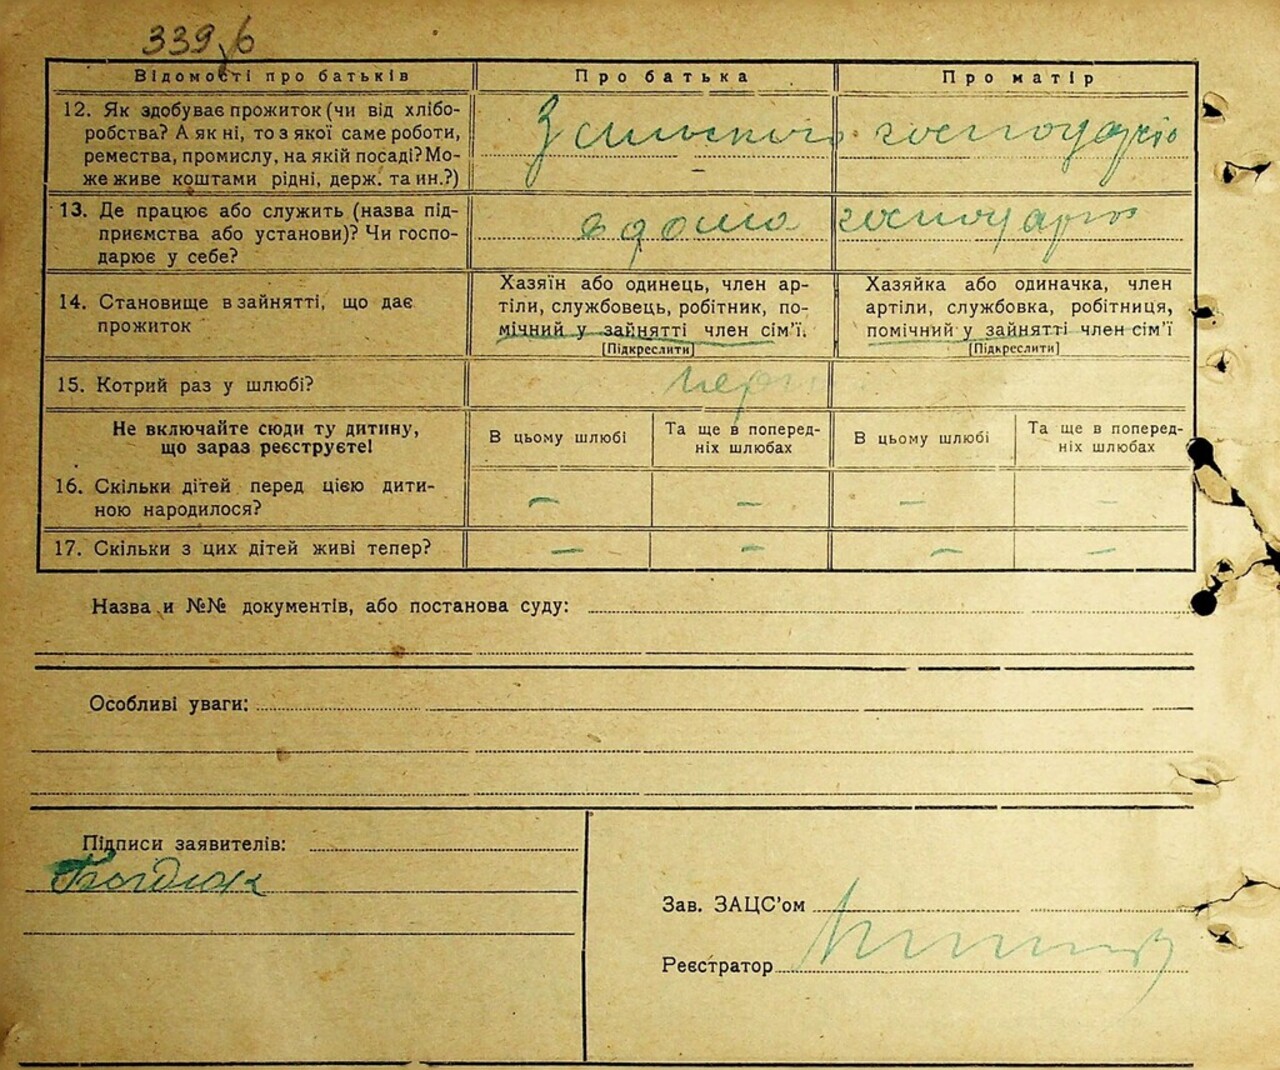 339
Відомості про батьків Про батька Про матір
12. Як здобуває прожиток (чи від хлібо-
робства? А як ні, то з якої саме роботи,
ремества, промислу, на якій посаді? Мо-
же живе коштами рідні, держ. та ин.?)
З сильского господарства
13. Де працює або служить (назва під-
приємства або установи)? Чи госпо-
дарює у себе?
вдома господарює
14. Становище в зайнятті, що дає
прожиток
Хазяїн або одинець, член ар-
тіли, службовець, робітник, по-
мічний у зайнятті член сім'ї.
[Підкреслити]
Хазяйка або одиначка, член
артіли, службовка, робітниця,
помічний у зайнятті член сім'ї
[Підкреслити]
15. Котрий раз у шлюбі?
Не включайте сюди ту дитину,
що зараз реєструєте!
В цьому шлюбі
Та ще в поперед-
ніх шлюбах
В цьому шлюбі
Та ще в поперед-
ніх шлюбах
16. Скільки дітей перед цією дити-
ною народилося?
— — — —
17. Скільки з цих дітей живі тепер?
— — — —
Назва и №№ документів, або постанова суду:
Особливі уваги:
Підписи заявителів:
Зав. ЗАЦС'ом
Реєстратор